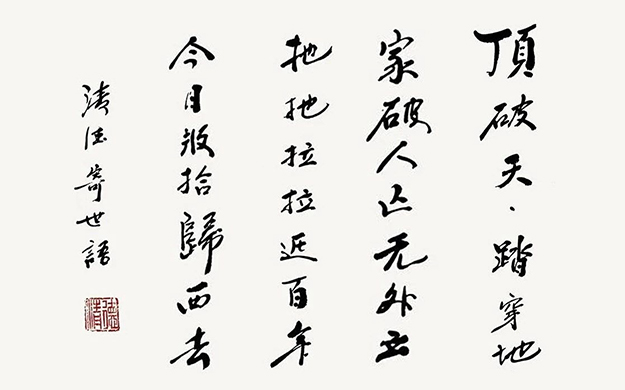 頂破天、踏穿地
家破人亡无外出
拖拖拉拉近百年
今日收拾歸西去
清德寄世語
德清